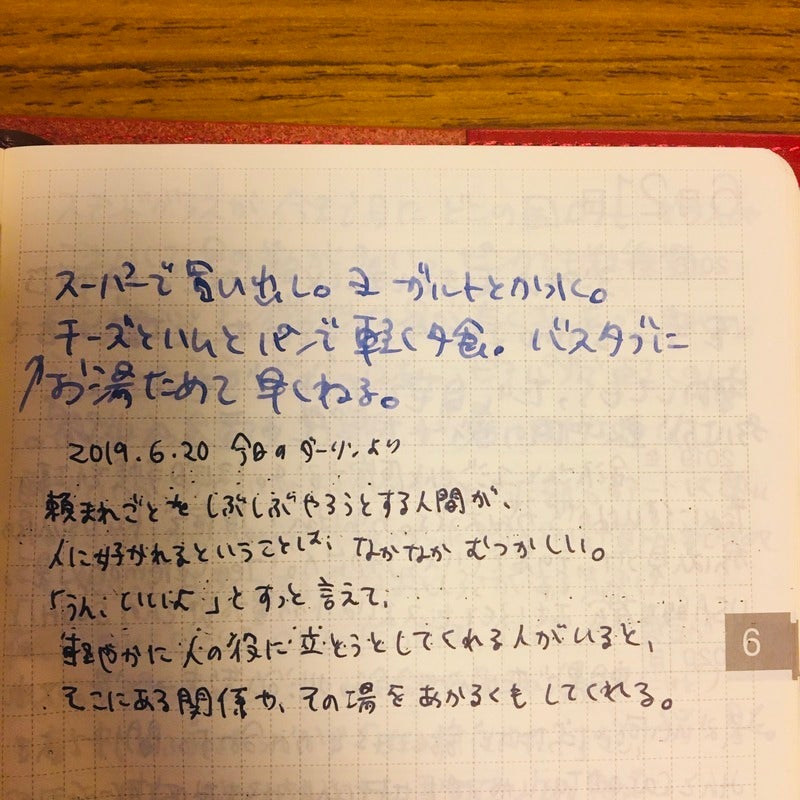 スーパーで買い出し。ヨーグルトとか
チーズとハムとパンで軽く夕食。バスタブに
お湯ためて早くねる。
2019.6.20 今日のダーリンより
頼まれごとをしぶしぶやろうとする人間が、
人に好かれるということは、なかなかむつかしい。
「うん、いいよ」とすっと言えて、
軽やかに人の役に立とうとしてくれる人がいると、
そこにある関係や、その場をあかるくもしてくれる。
6